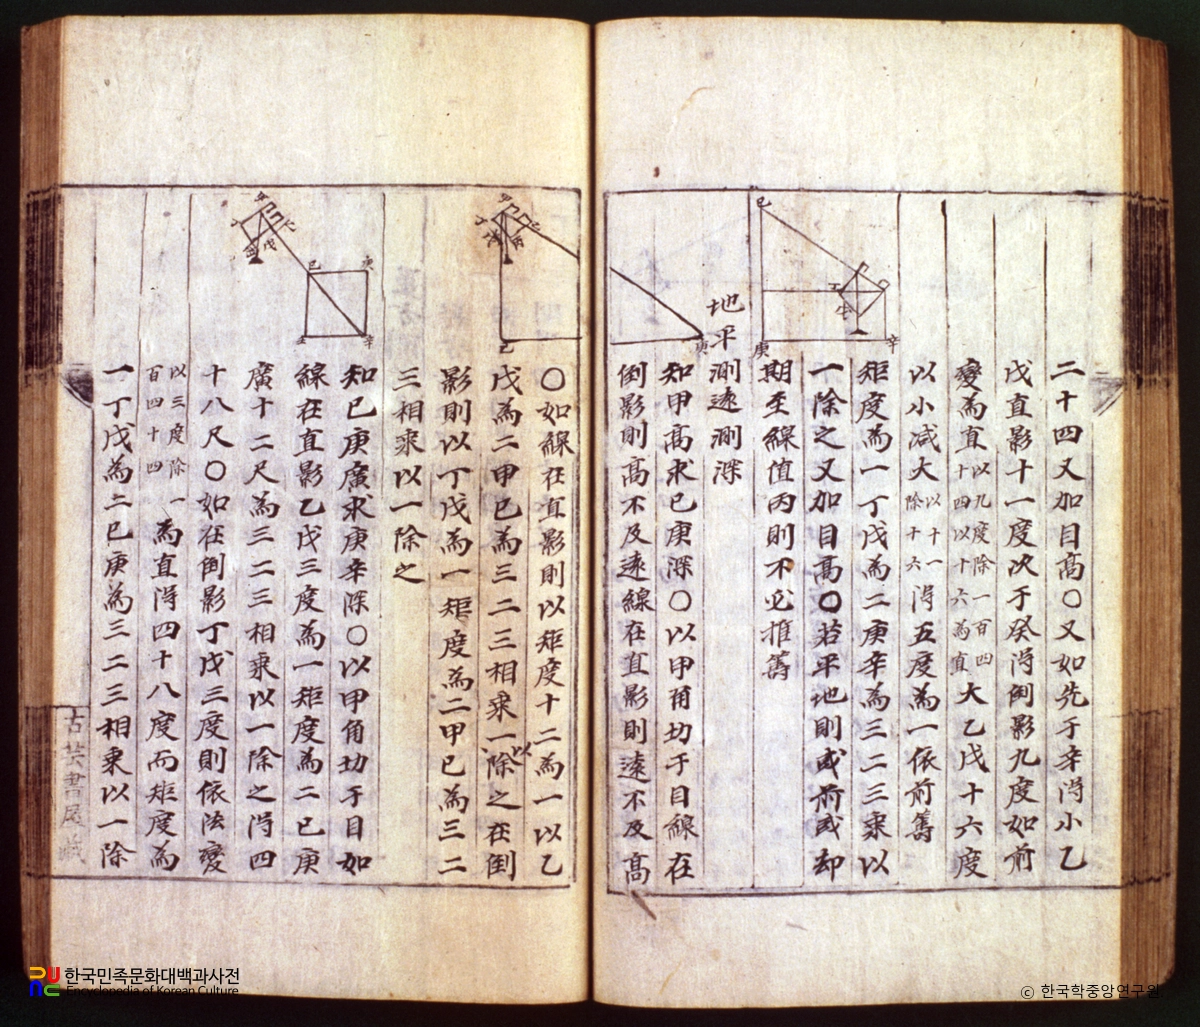 二十四又加目高〇又如先于辛得小乙
戊直影十一度次于癸得倒影九度如前
變為直以九度除一百四十四以十六為直大乙戊十六度
以小減大以十一除十六得五度為一依前筭
矩度為一丁戊為二庚辛為三二三乘以
一除之又加目高〇若平地則或前或却
期至線值丙則不必推筭
地平測遠測深
知甲高求已庚深〇以甲角切于目線在
倒影則高不及遠線在直影則遠不及高
〇如線在直影則以矩度十二為一以乙
戊為二甲已為三二三相乘以一除之在倒
影則以丁戊為一矩度為二甲已為三二
三相乘以一除之
知已庚廣求庚辛深〇以甲角切于目如
線在直影乙戊三度為一矩度為二已庚
廣十二尺為三二三相乘以一除之得四
十八尺〇如在倒影丁戊三度則依法變
以三度除一百四十四為直得四十八度而矩度為
一丁戊為二已庚為三二三相乘以一除
古芸書屋藏
已
庚
辛
庚
已
已
庚
辛
한국민족문화대백과사전
Encyclopedia of Korean Culture
ⓒ 한국학중앙연구원